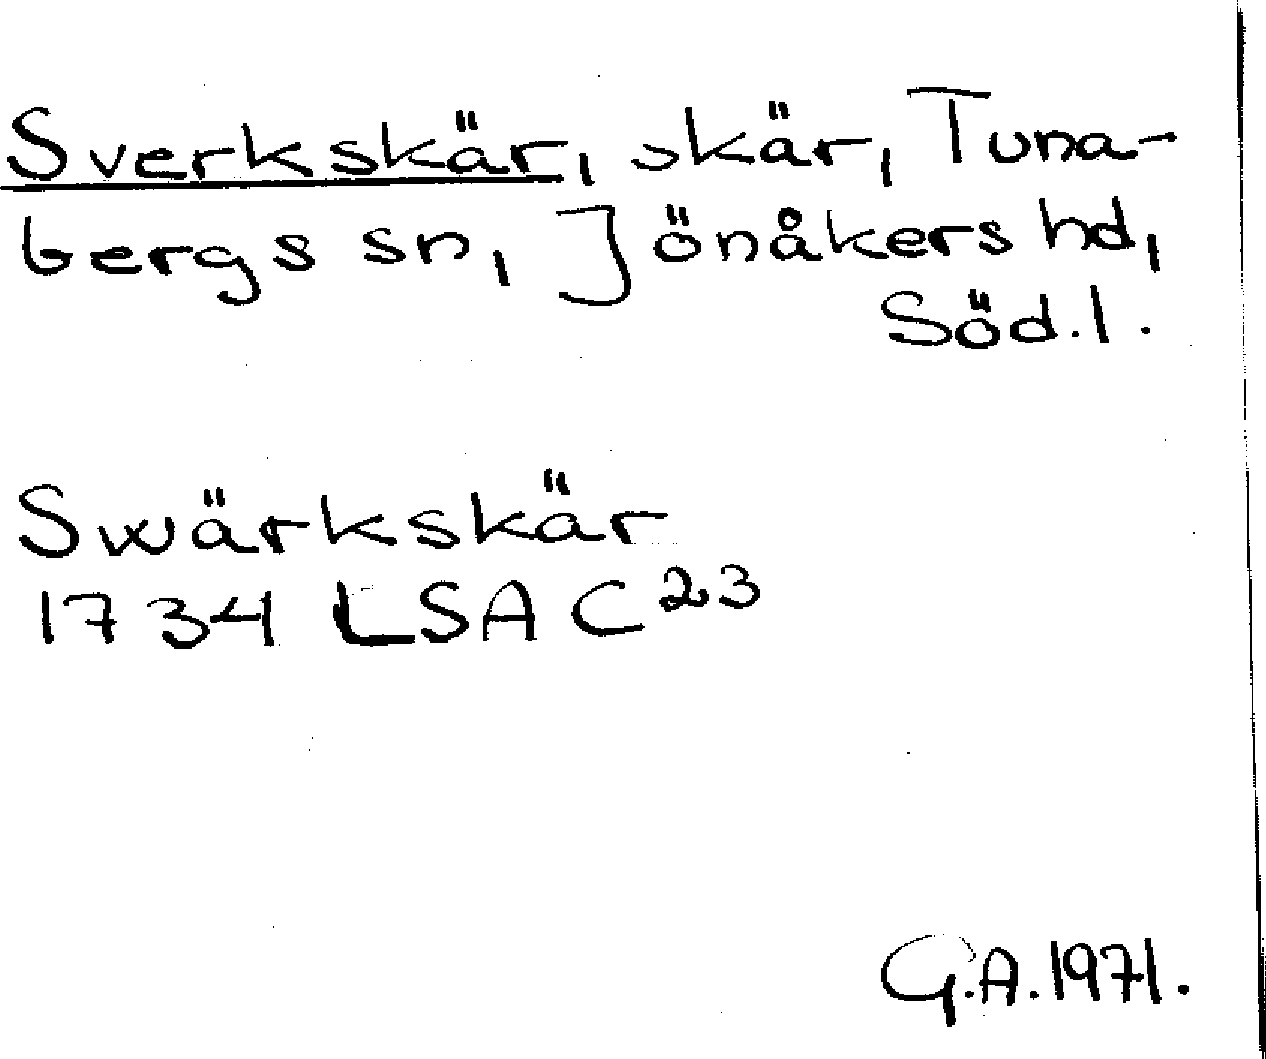 Sverkskär, skär, Tuna-
bergs sn, Jönåkers hd,
Söd.l.
Swärkskär
1734 LSA C23
G.A.1971.